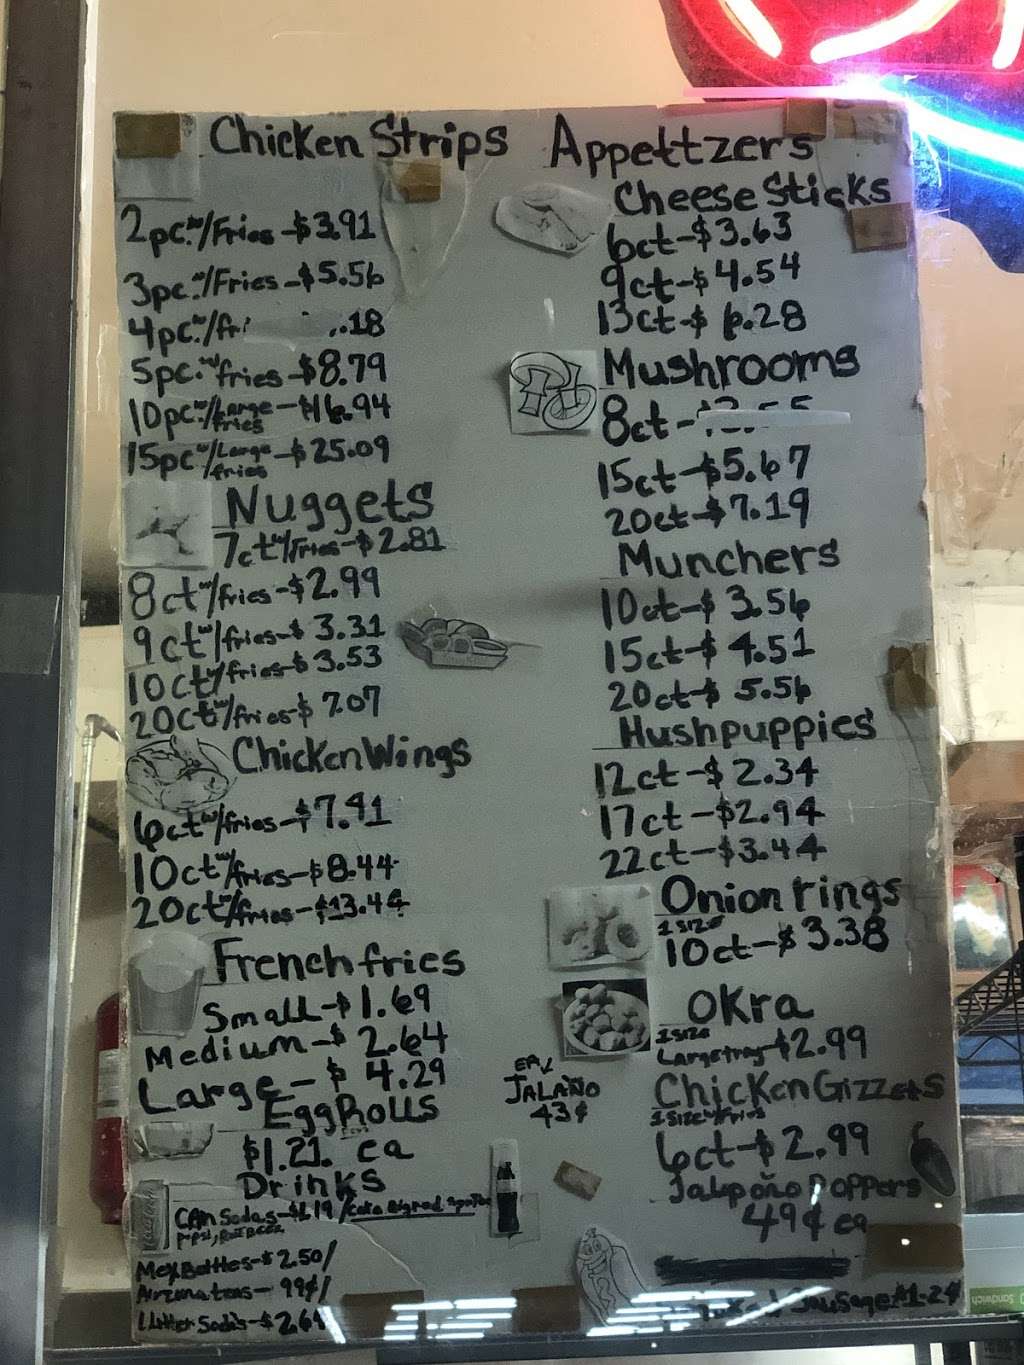 Chicken Strips
2pc. w/Fries - $3.91
3pc. w/Fries - $5.56
4pc. w/fri .18
5pc. w/fries - $8.79
10pc w/Large fries - $16.94
15pc w/Large fries - $25.09
Nuggets
7ct w/Fries - $2.81
8ct w/fries - $2.99
9ct w/fries - $3.31
10ct w/fries - $3.53
20ct w/fries - $7.07
Chicken Wings
6ct w/fries - $7.41
10ct w/fries - $8.44
20ct w/fries - $13.44
French fries
Small - $1.69
Medium - $2.64
Large - $4.29
EggRolls
$1.21. ea
Drinks
CAn Sodas - $1.19 /
Pepsi, Root Beer
Mex Bottles - $2.50/
Arizona teas - 99¢/
Litter Soda's - $2.64
EA
JALAÑO
43¢
Appettzers
Cheese Sticks
6ct - $3.63
9ct - $4.54
13ct - $6.28
Mushrooms
8ct -
15ct - $5.67
20ct - $7.19
Munchers
10ct - $3.56
15ct - $4.51
20ct - $5.56
Hushpuppies
12ct - $2.34
17ct - $2.94
22ct - $3.44
Onion rings
1 size
10ct - $3.38
OKra
1 size
Large tray - $2.99
Chicken Gizzets
1 size w/fries
6ct - $2.99
Jalapoño Poppers
49¢ ea
Sausage $1.29
Sandwich